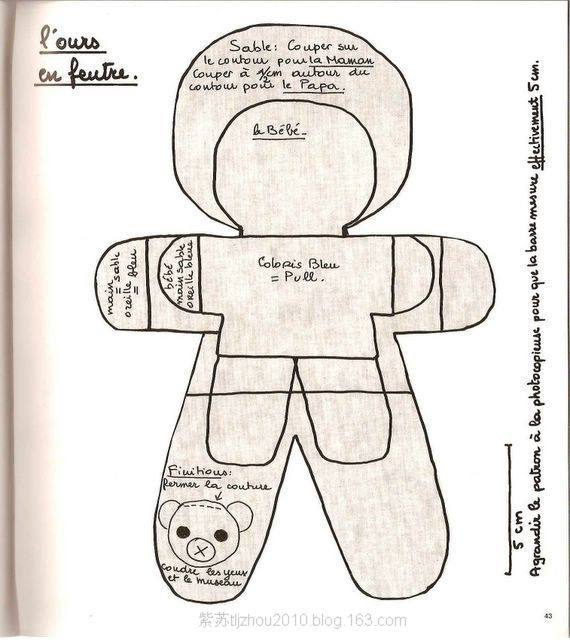 l'ours
en feutre.
Sable: Couper sur
le contour pour la Maman
Couper à 1/2cm autour du
contour pour le Papa.
le Bébé.
main = sable
oreille = bleu
bébé
main sable
oreille bleue
Coloris Bleu
= Pull.
Finitions:
fermer la couture
coudre les yeux
et le museau
5 cm
Agrandir le patron à la photocopieuse pour que la barre mesure effectivement 5 cm.
43
紫苏tljzhou2010.blog.163.com